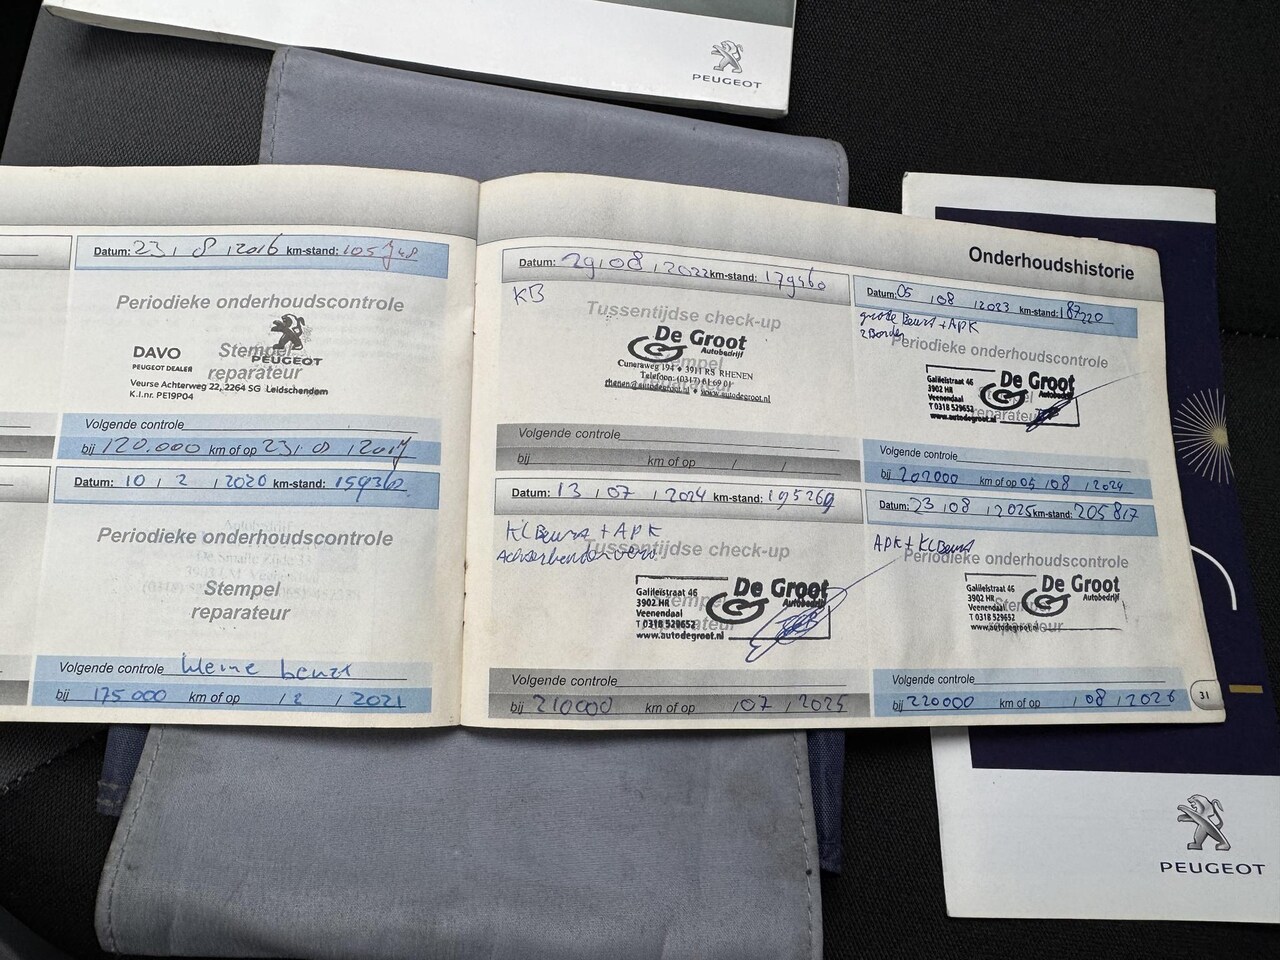 PEUGEOT
Datum: 23 / 8 / 2016 km-stand: 105748
Periodieke onderhoudscontrole
Stempel
reparateur
PEUGEOT
DAVO
PEUGEOT DEALER
Veurse Achterweg 22, 2264 SG Leidschendam
K.I.nr. PE19P04
Volgende controle
bij 120.000 km of op 23 / 8 / 2017
Datum: 10 / 2 / 2020 km-stand: 159362
Periodieke onderhoudscontrole
Stempel
reparateur
Volgende controle kleine beurt
bij 175000 km of op / 2 / 2021
Onderhoudshistorie
Datum: 29 / 08 / 2022 km-stand: 179460
KB
Tussentijdse check-up
Stempel
De Groot
Autobedrijf
Cuneraweg 194 • 3911 RS RHENEN
Telefoon: (0317) 61 69 01
rhenen@autodegroot.nl • www.autodegroot.nl
Volgende controle
bij km of op / /
Datum: 05 / 08 / 2023 km-stand: 187220
grote Beurt + APK
2 Banden
Periodieke onderhoudscontrole
reparateur
Galileistraat 46
3902 HR
Veenendaal
T 0318 529652
www.autodegroot.nl
De Groot
Autobedrijf
Volgende controle
bij 202000 km of op 05 / 08 / 2024
Datum: 13 / 07 / 2024 km-stand: 195269
KL Beurt + APK
Tussentijdse check-up
Galileistraat 46
3902 HR
Veenendaal
T 0318 529652
www.autodegroot.nl
De Groot
Autobedrijf
Volgende controle
bij 210000 km of op / 07 / 2025
Datum: 23 / 08 / 2025 km-stand: 205817
APK + KL Beurt
Periodieke onderhoudscontrole
Galileistraat 46
3902 HR
Veenendaal
T 0318 529652
www.autodegroot.nl
De Groot
Autobedrijf
Volgende controle
bij 220000 km of op / 08 / 2026
31
PEUGEOT